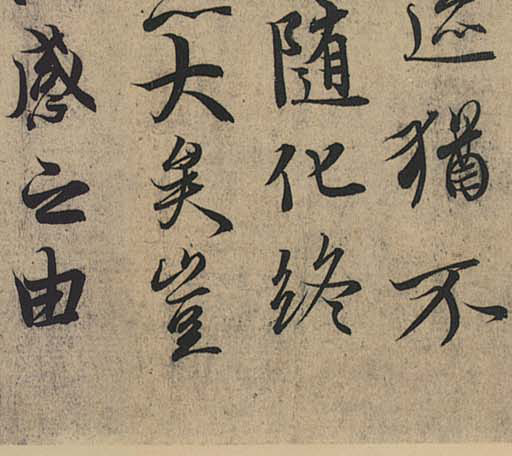 迹猶不
随化終
大矣豈
感之由